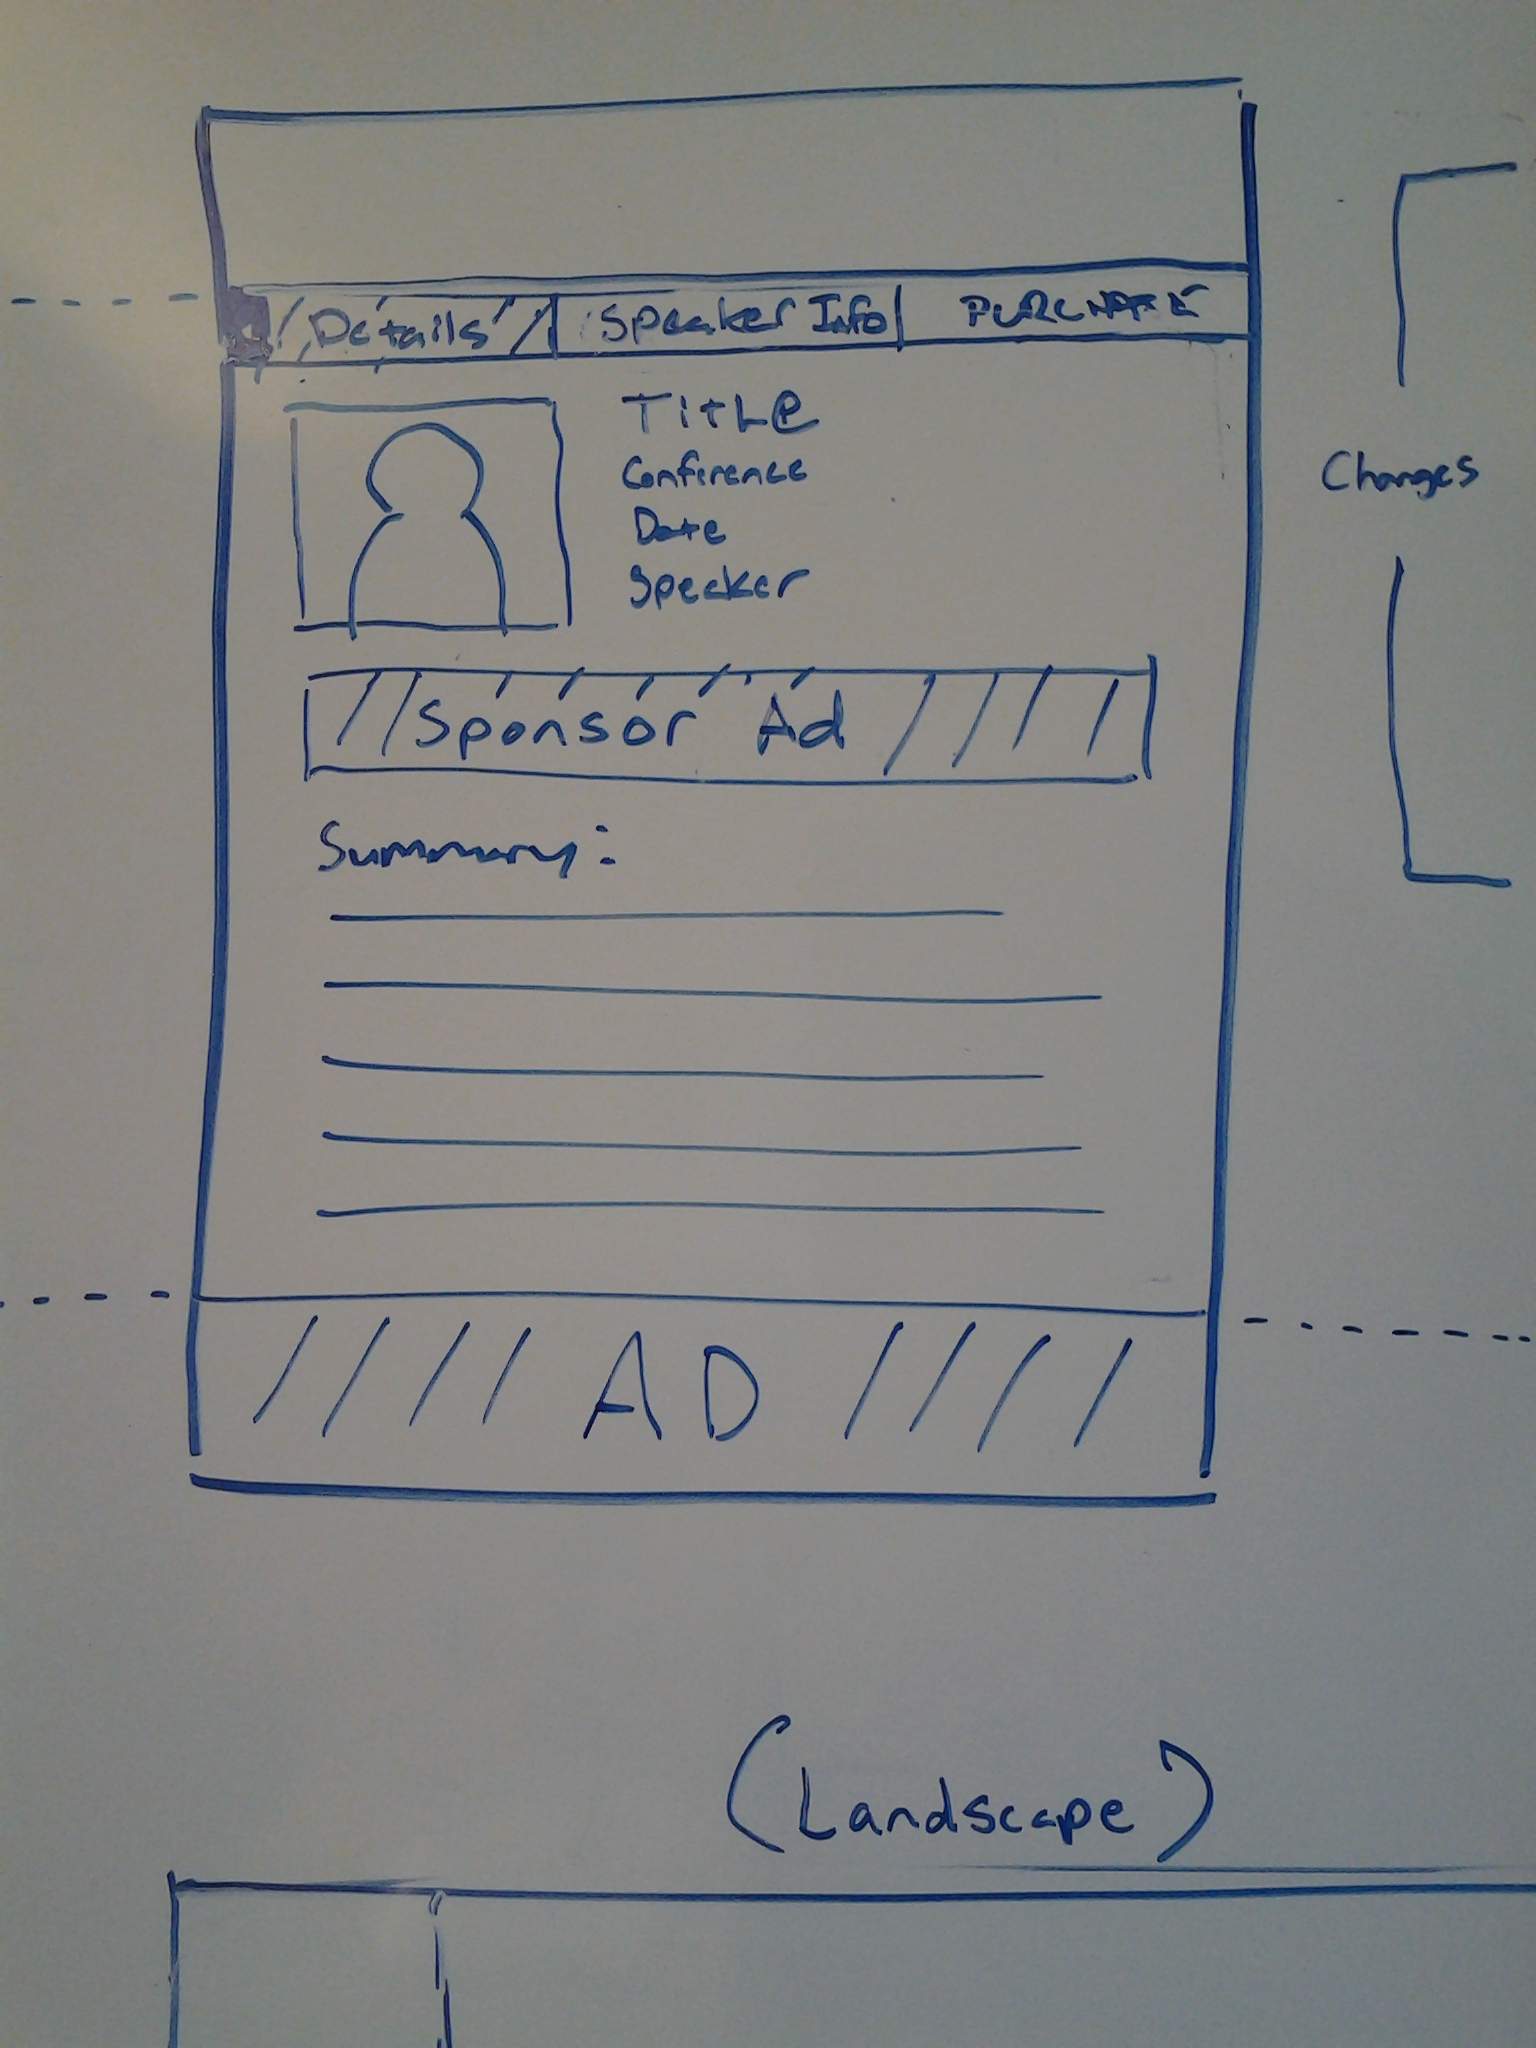 Details Speaker Info PURCHASE
Title
Conference
Date
Speaker
Changes
Sponsor Ad
Summary:
AD
(Landscape)